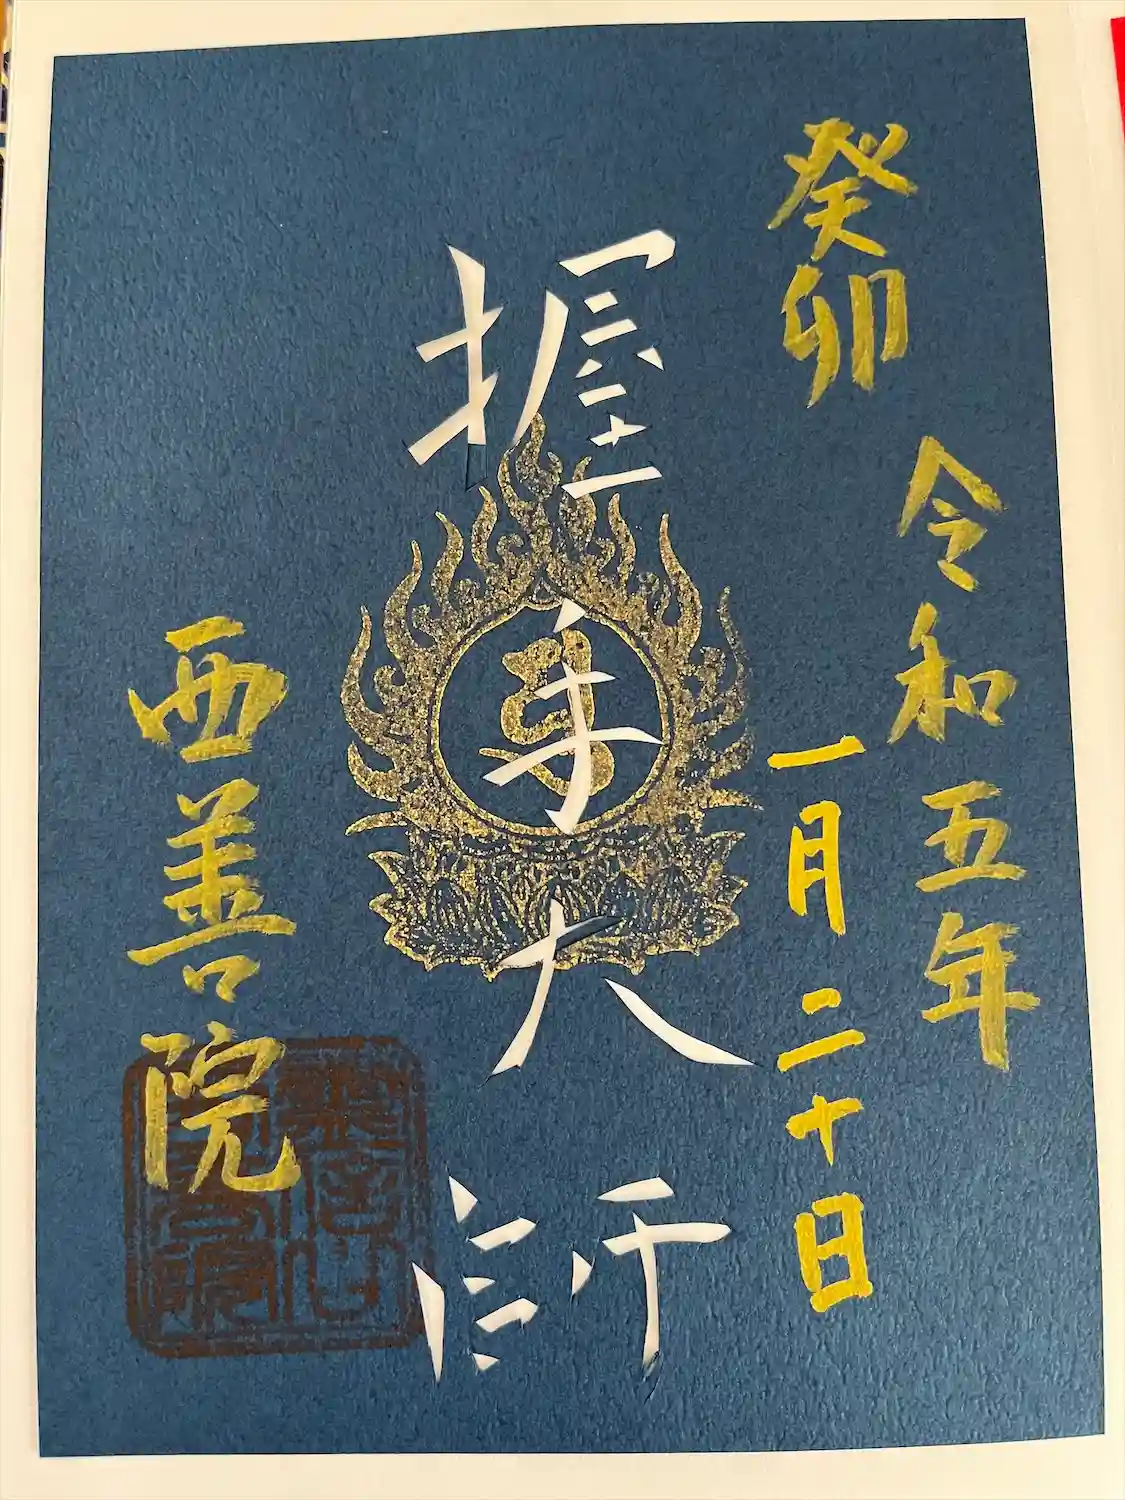 癸卯
令和五年
一月二十日
握手大師
西善院